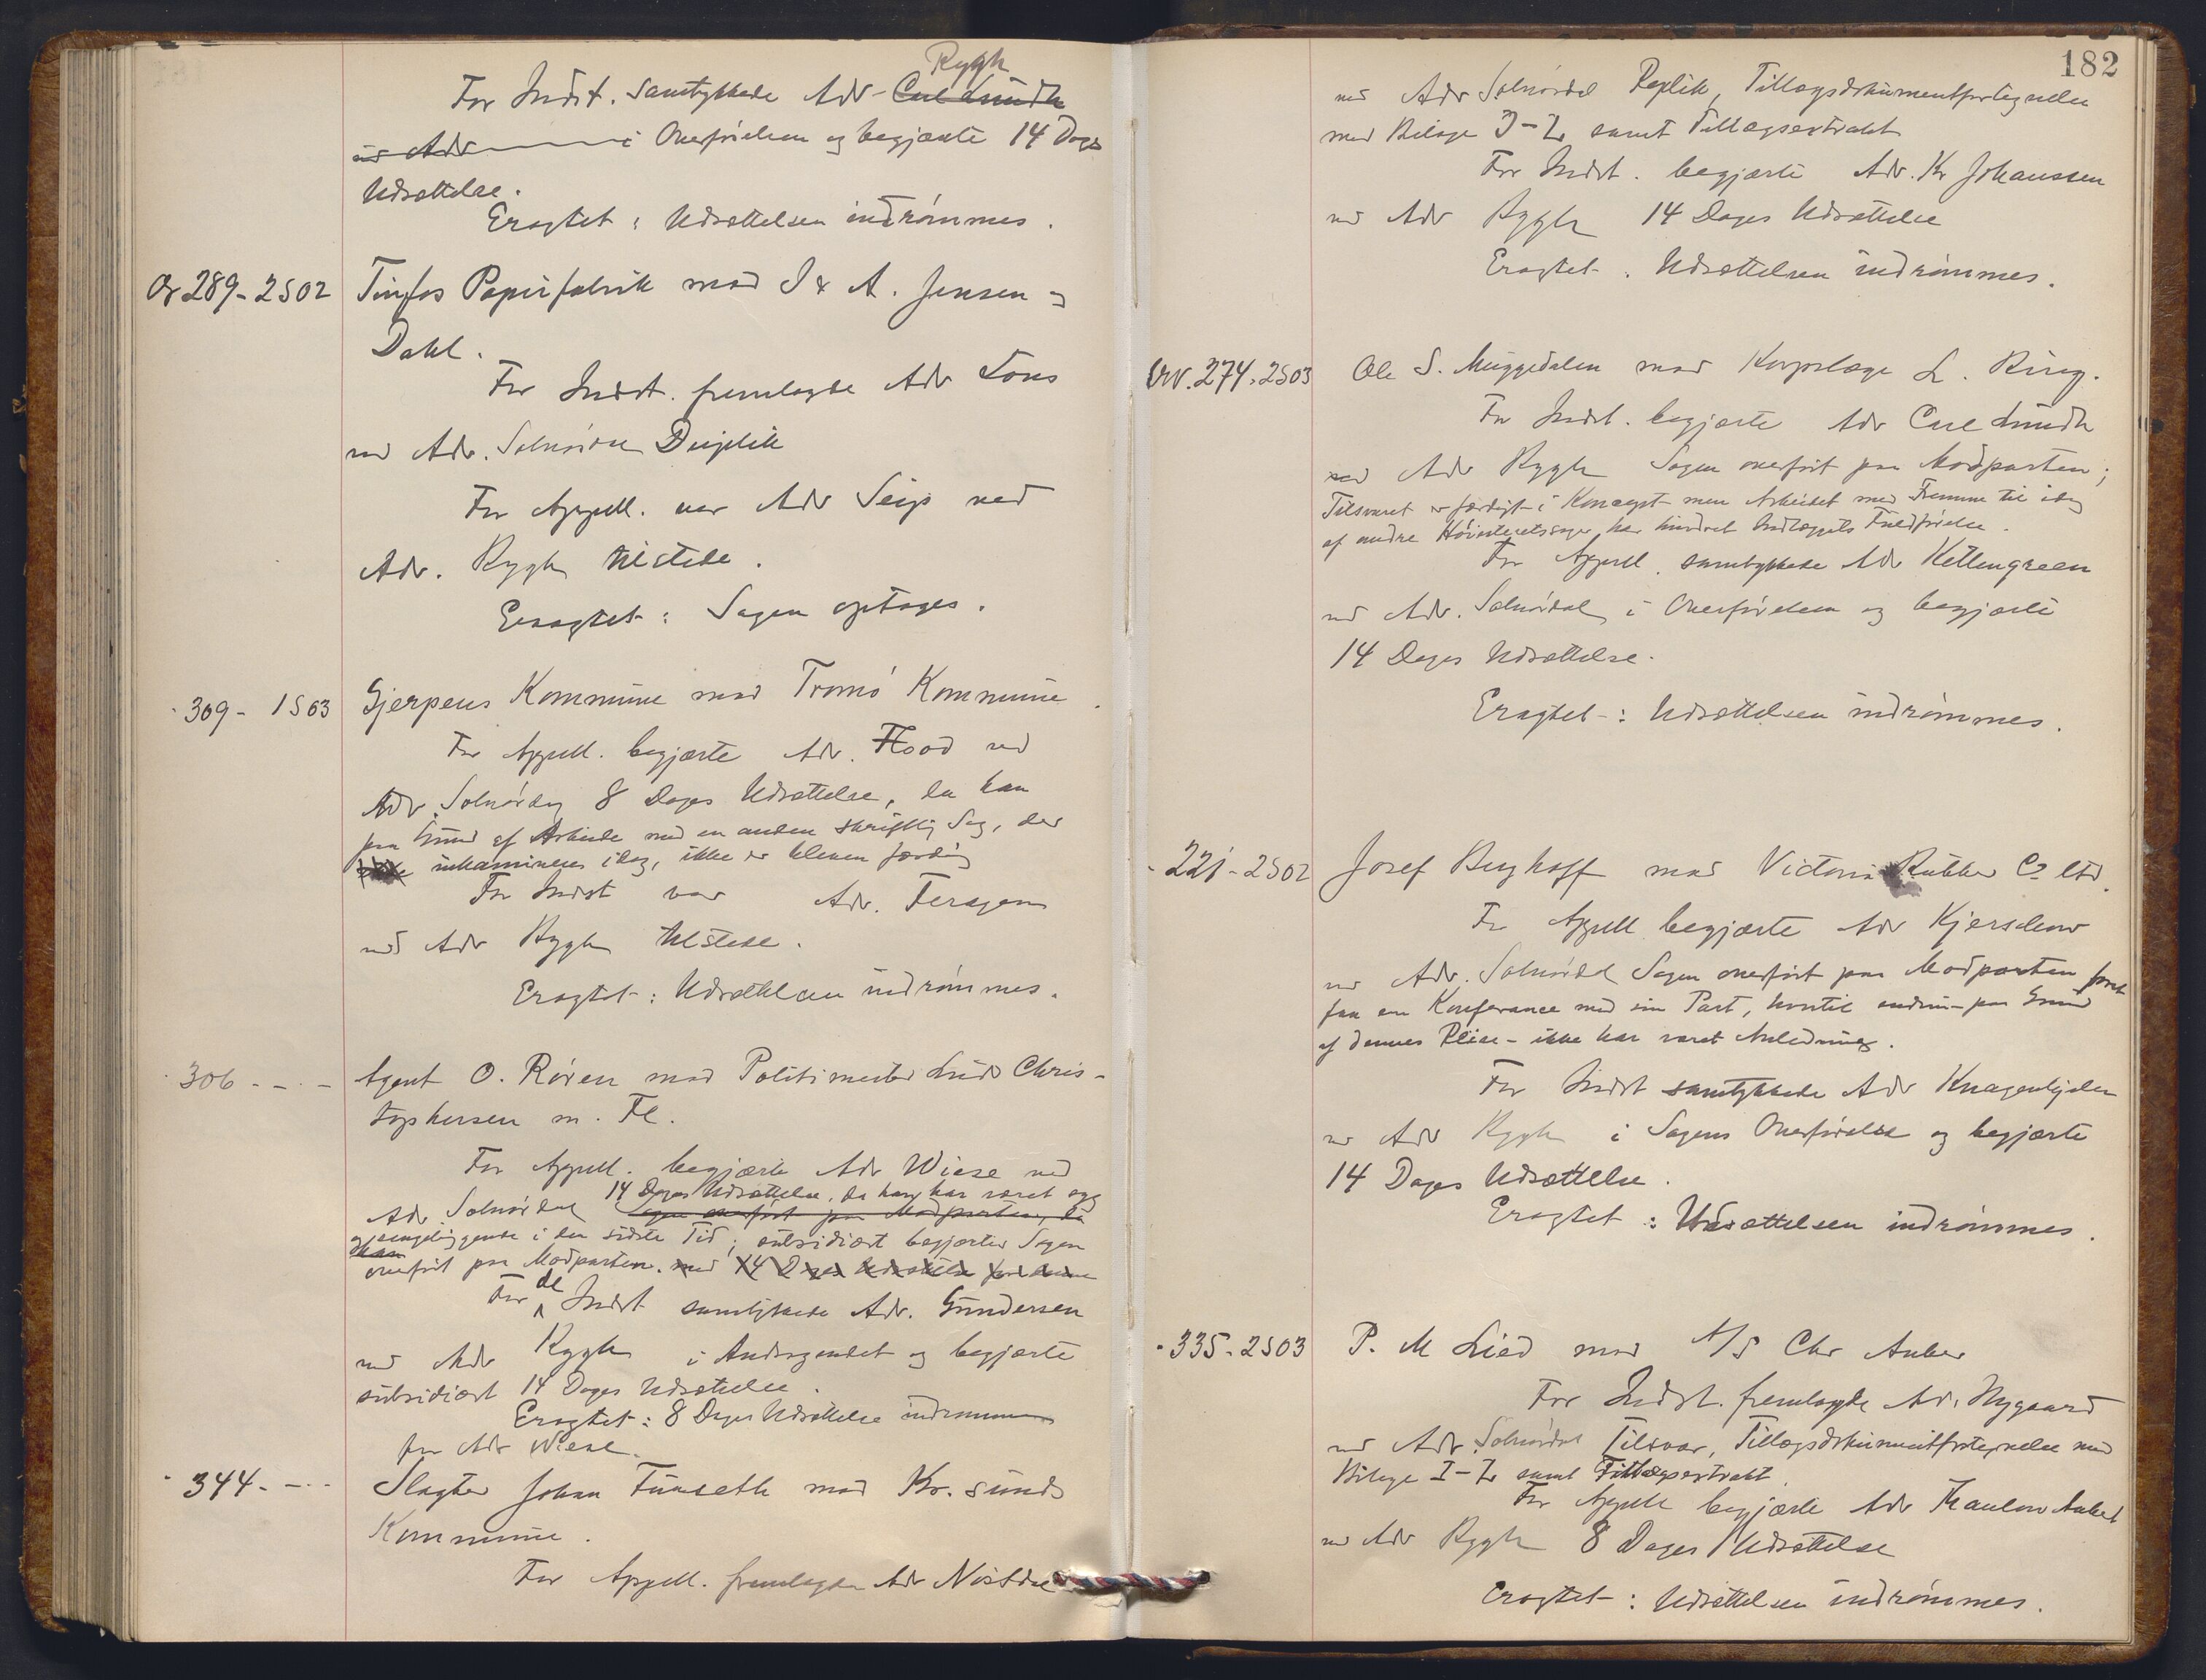 Rygh
For Indst. samtykkede Adv Carl Lundh
ved Adv i Overförelsen og begjærte 14 Dages
Udsættelse.
Eragtet: Udsættelsen indrömmes.
Or 289-2502 Tinfos Papirfabrik mod I & A. Jensen og
Dahl.
For Indst. fremlagde Adv Lous
ved Adv. Solnördal Duplik
For Appell. var Adv Seip ved
Adv. Rygh tilstede.
Eragtet: Sagen optages.
309- 1503 Gjerpens Kommune mod Tromö Kommune.
For Appell. begjærte Adv. Flood ved
Adv. Solnördal 8 Dages Udsættelse, da han
paa Grund af Arbeide med en anden skriftlig Sag, der
inkamineres idag, ikke er bleven færdig
For Indst var Adv. Feragen
ved Adv Rygh tilstede.
Eragtet: Udsættelsen indrömmes.
306 - - - Agent O. Rören mod Politimester Lued Chris-
tophersen m. Fl.
For Appell. begjærte Adv Wiese ved
14 Dages Udsættelse, da han har været syg
Adv Solnördal Sagen overfört paa Modparten, da
og sengeliggende i den sidste Tid; subsidiært begjærtes Sagen
han
overfört paa Modparten. med 14 Dages Udsættelse for denne
For de Indst samtykkede Adv. Gundersen
ved Adv Rygh i Andragendet og begjærte
subsidiært 14 Dages Udsættelse.
Eragtet: 8 Dages Udsættelse indrömmes
for Adv Wiese.
344. - - - Slagter Johan Tunseth mod Kr. sunds
Kommune.
For Appell. fremlagde Adv Nöstdal
182
ved Adv Solnördal Replik, Tillægsdokumentfortegnelse
med Bilage I-L samt Tillægsextrakt
For Indst. begjærte Adv. Kr Johanssen
ved Adv Rygh 14 Dages Udsættelse
Eragtet: Udsættelsen indrömmes.
Or. 274. 2503 Ole S. Muggedalen mod Korpslæge L. Ring.
For Indst. begjærte Adv Carl Lundh
ved Adv Rygh Sagen overfört paa Modparten;
Tilsvaret er færdigt i Koncept men Arbeidet med Fremme til idag
af andre Höiesteretssager har hindret Indlæggets Fuldförelse.
For Appell. samtykkede Adv Kettengreen
ved Adv. Solnördal i Overförelsen og begjærte
14 Dages Udsættelse.
Eragtet: Udsættelsen indrömmes.
221-2502 Josef Berghoff mod Victoria Rubber Co ltd.
For Appell begjærte Adv Kjerschow
ved Adv. Solnördal Sagen overfört paa Modparten for at
faa en Konferance med sin Part, hvortil endnu - paa Grund
af dennes Reise - ikke har været Anledning.
For Indst samtykkede Adv Knagenhjelm
ved Adv Rygh i Sagens Overförelse og begjærte
14 Dages Udsættelse.
Eragtet: Udsættelsen indrömmes.
335-2503 P. M Lied mod A/S Chr Anker
For Indst. fremlagde Adv. Nygaard
ved Adv. Solnördal Tilsvar, Tillægsdokumentfortegnelse med
Bilage I-L samt Tillægsextrakt.
For Appell begjærte Adv Thaulow Aubert
ved Adv Rygh 8 Dages Udsættelse
Eragtet: Udsættelsen indrömmes.